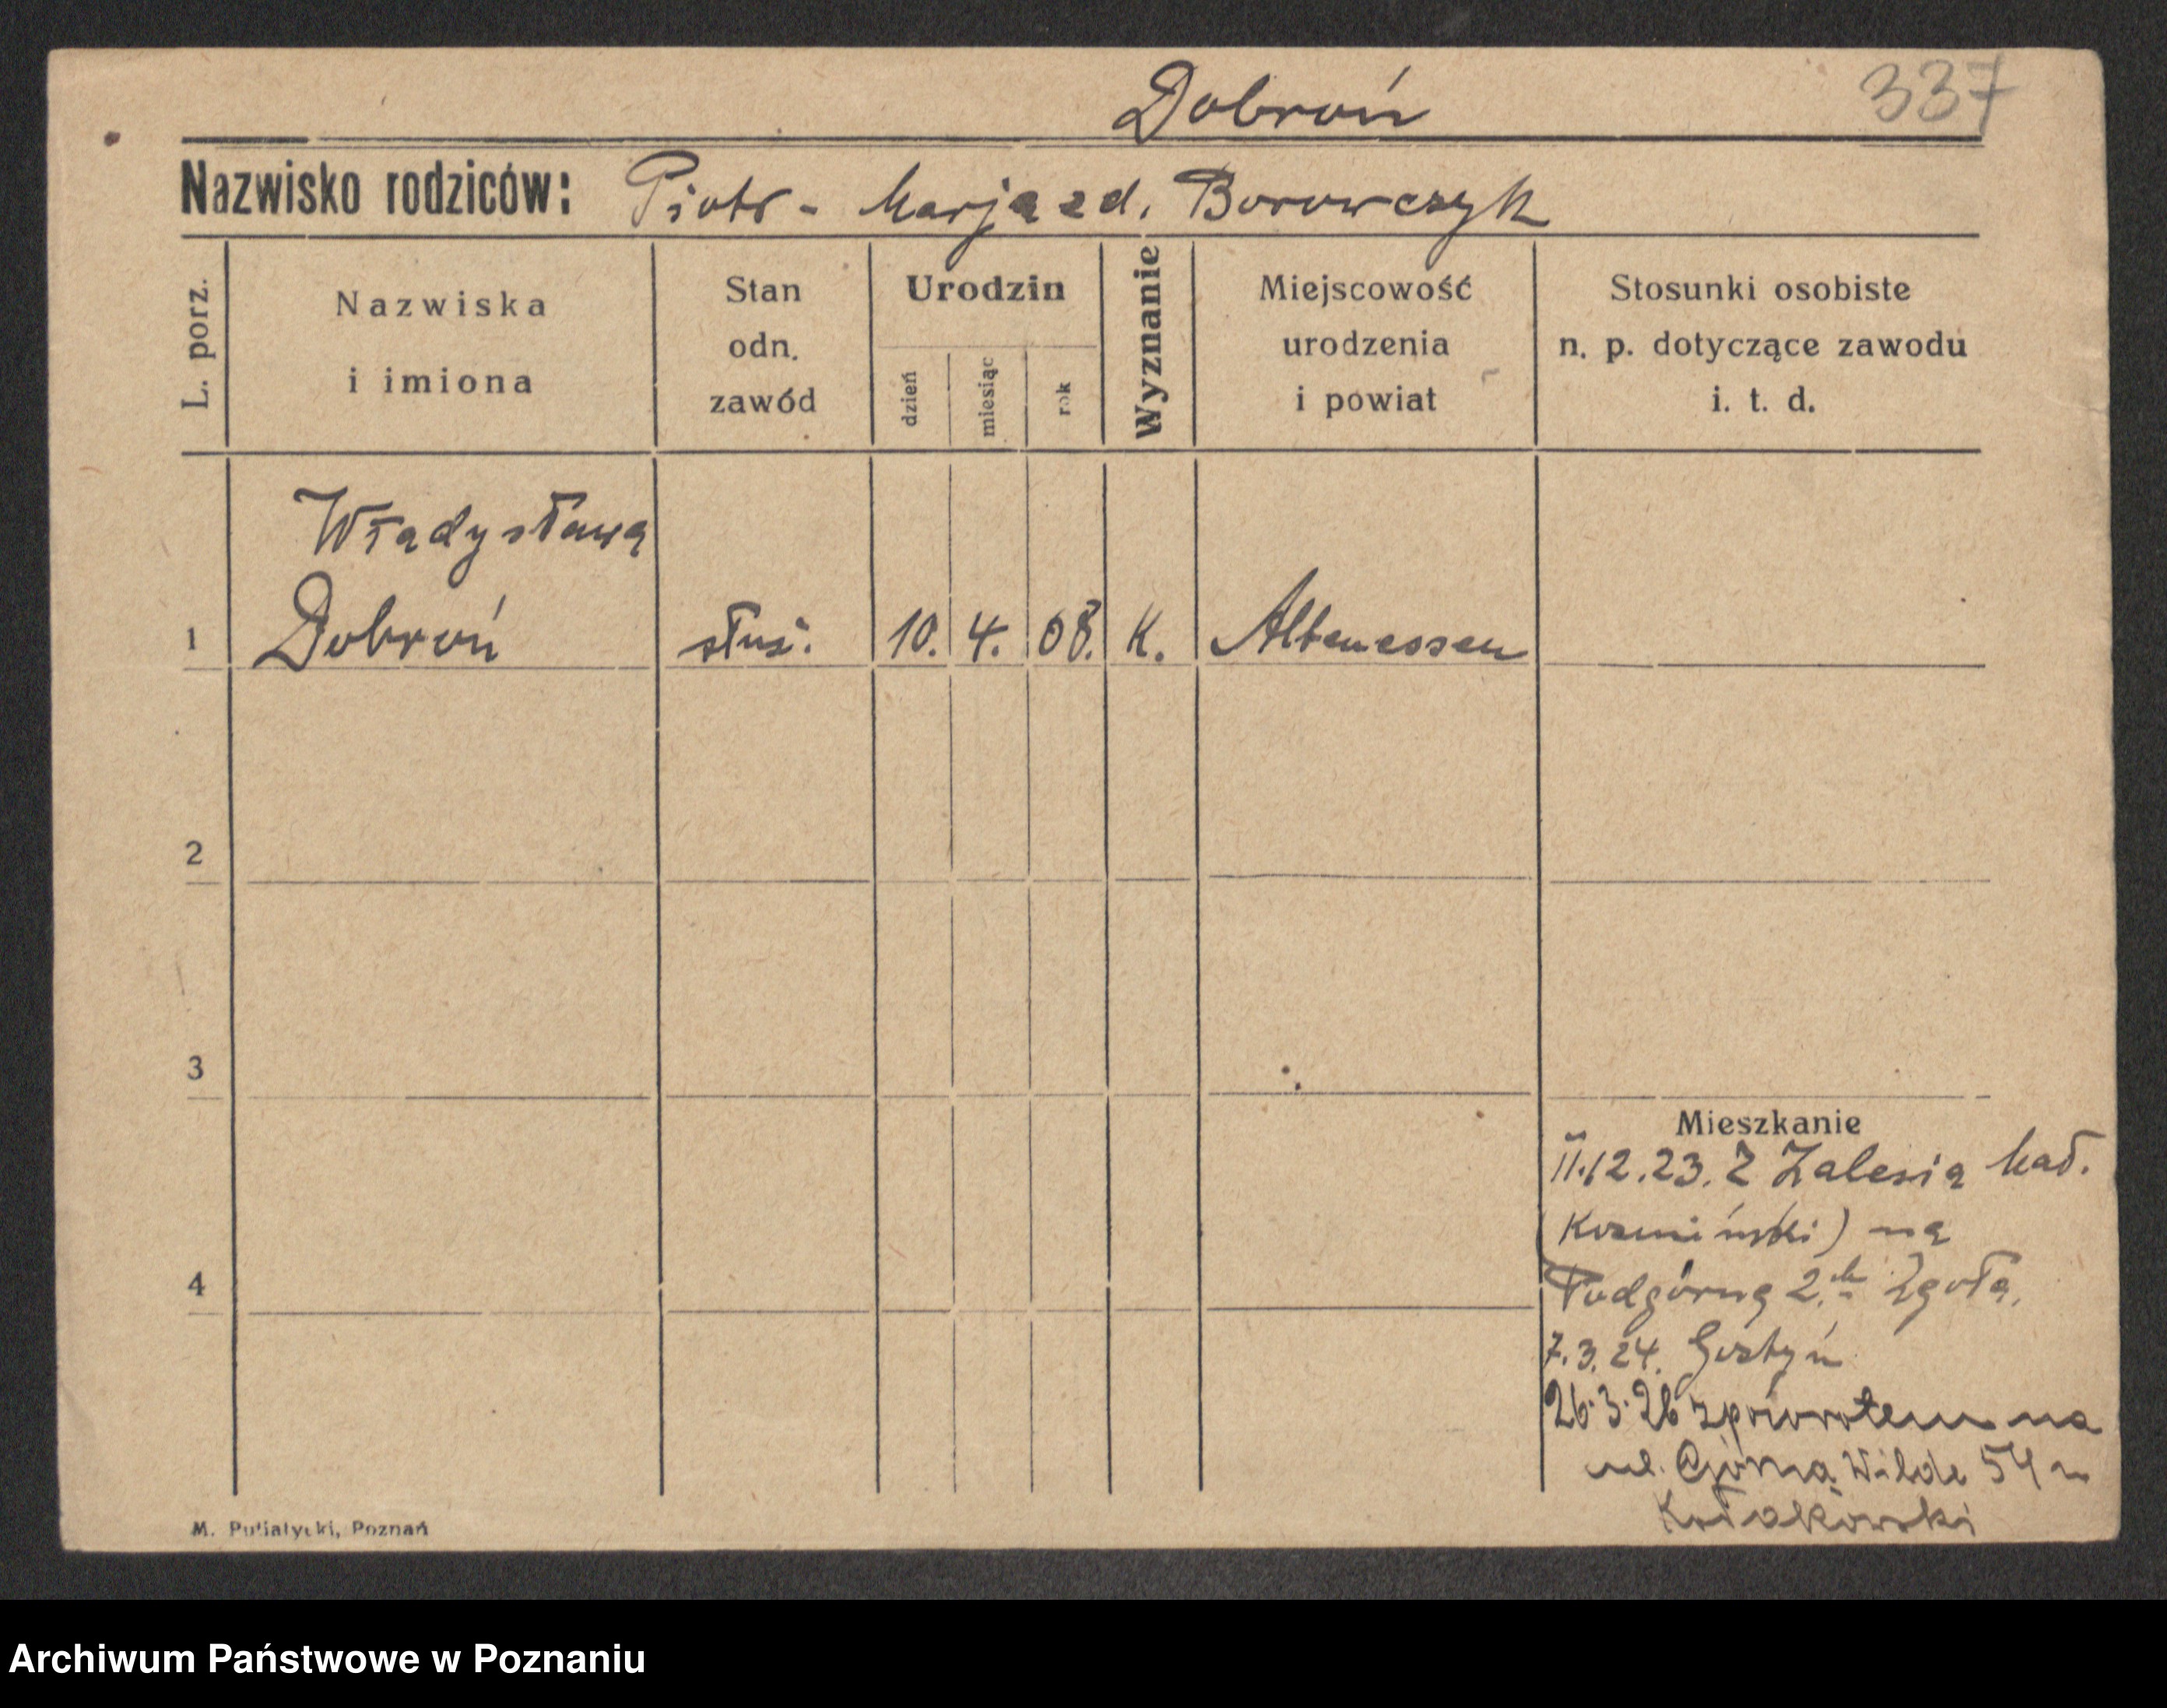 Dobroń
337
Nazwisko rodziców: Piotr - Marja zd. Borowczyk
L. porz.
Nazwiska
i imiona
Stan
odn.
zawód
Urodzin
dzień
miesiąc
rok
Wyznanie
Miejscowość
urodzenia
i powiat
Stosunki osobiste
n. p. dotyczące zawodu
i. t. d.
Władysława
1 Dobroń służ. 10. 4. 08. K. Altenessen
2
3
4
Mieszkanie
11.12.23. Z Zalesia
na
Podgórną 2. Zgoła.
7.3.24. Gostyń
26.3.26 zpowrotem na
ul. Górna Wilda 54 u
M. Putiatycki, Poznań
Archiwum Państwowe w Poznaniu